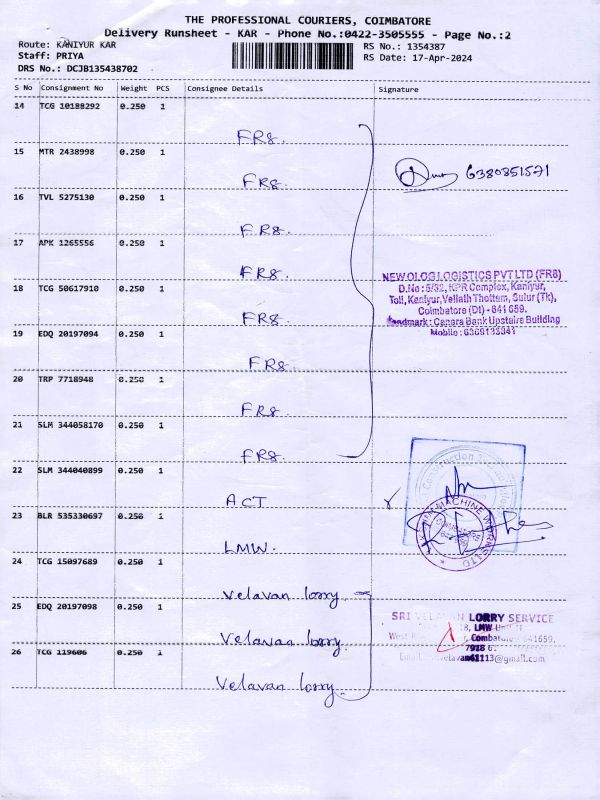 THE PROFESSIONAL COURIERS, COIMBATORE
Delivery Runsheet - KAR - Phone No.:0422-3505555 - Page No.:2
Route: KANIYUR KAR
RS No.: 1354387
Staff: PRIYA
RS Date: 17-Apr-2024
DRS No.: DCJB135438702
S No Consignment No Weight PCS Consignee Details Signature
14 TCG 10188292 0.250 1
FR8.
15 MTR 2438998 0.250 1
6380351571
FR8.
16 TVL 5275130 0.250 1
FR8.
17 APK 1265556 0.250 1
FR8.
NEWOLOG LOGISTICS PVT LTD (FR8)
D.No : 5/32, KPR Complex, Kaniyur,
Toll, Kaniyur, Vellath Thottam, Sulur (Tk),
Coimbatore (Dt) - 641 659.
Landmark : Canara Bank Upstaire Building
Mobile :
18 TCG 50617910 0.250 1
FR8.
19 EDQ 20197094 0.250 1
FR8.
20 TRP 7718948 0.250 1
FR8.
21 SLM 344058170 0.250 1
FR8.
22 SLM 344040899 0.250 1
ACT
23 BLR 535330697 0.250 1
LMW.
MACHINE WORKS LTD
24 TCG 15097689 0.250 1
Velavan lorry.
25 EDQ 20197098 0.250 1
SRI VELAVAN LORRY SERVICE
LMW
Coimbatore - 641659.
Velavan lorry.
26 TCG 119606 0.250 1
Velavan lorry.